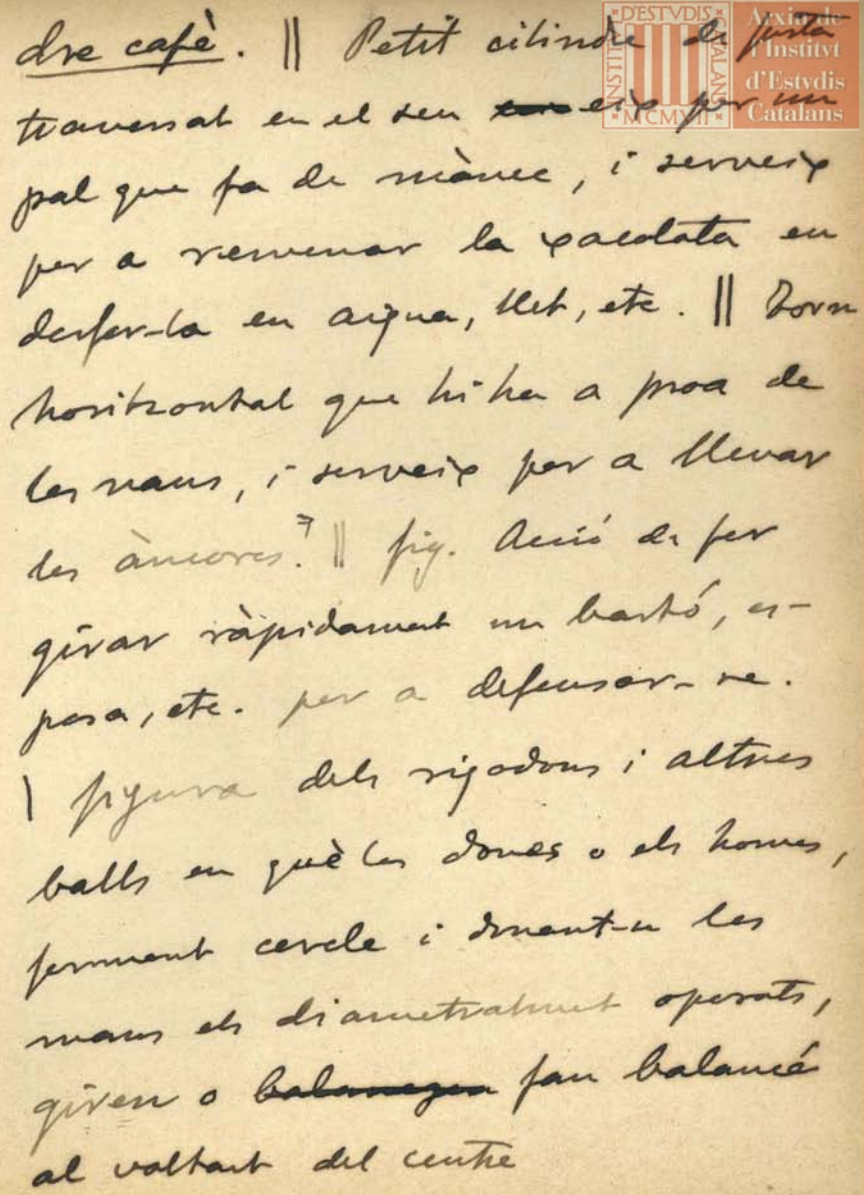 dre cafè. || Petit cilindre de fusta
traversat en el seu eix per un
pal que fa de mànec, i serveix
per a remenar la xacolata en
desfer-la en aigua, llet, etc. || Torn
horitzontal que hi ha a proa de
les naus, i serveix per a llevar
les àncores. || fig. Acció de fer
girar ràpidament un bastó, es-
pasa, etc. per a defensar-se.
| figura dels rigodons i altres
balls en què les dones o els homes,
formant cercle i donant-se les
mans els diametralment oposats,
giren o fan balancé
al voltant del centre
D'ESTVDIS
INSTITVT
CATALANS
MCMVII
Arxiu de
l'Institvt
d'Estvdis
Catalans